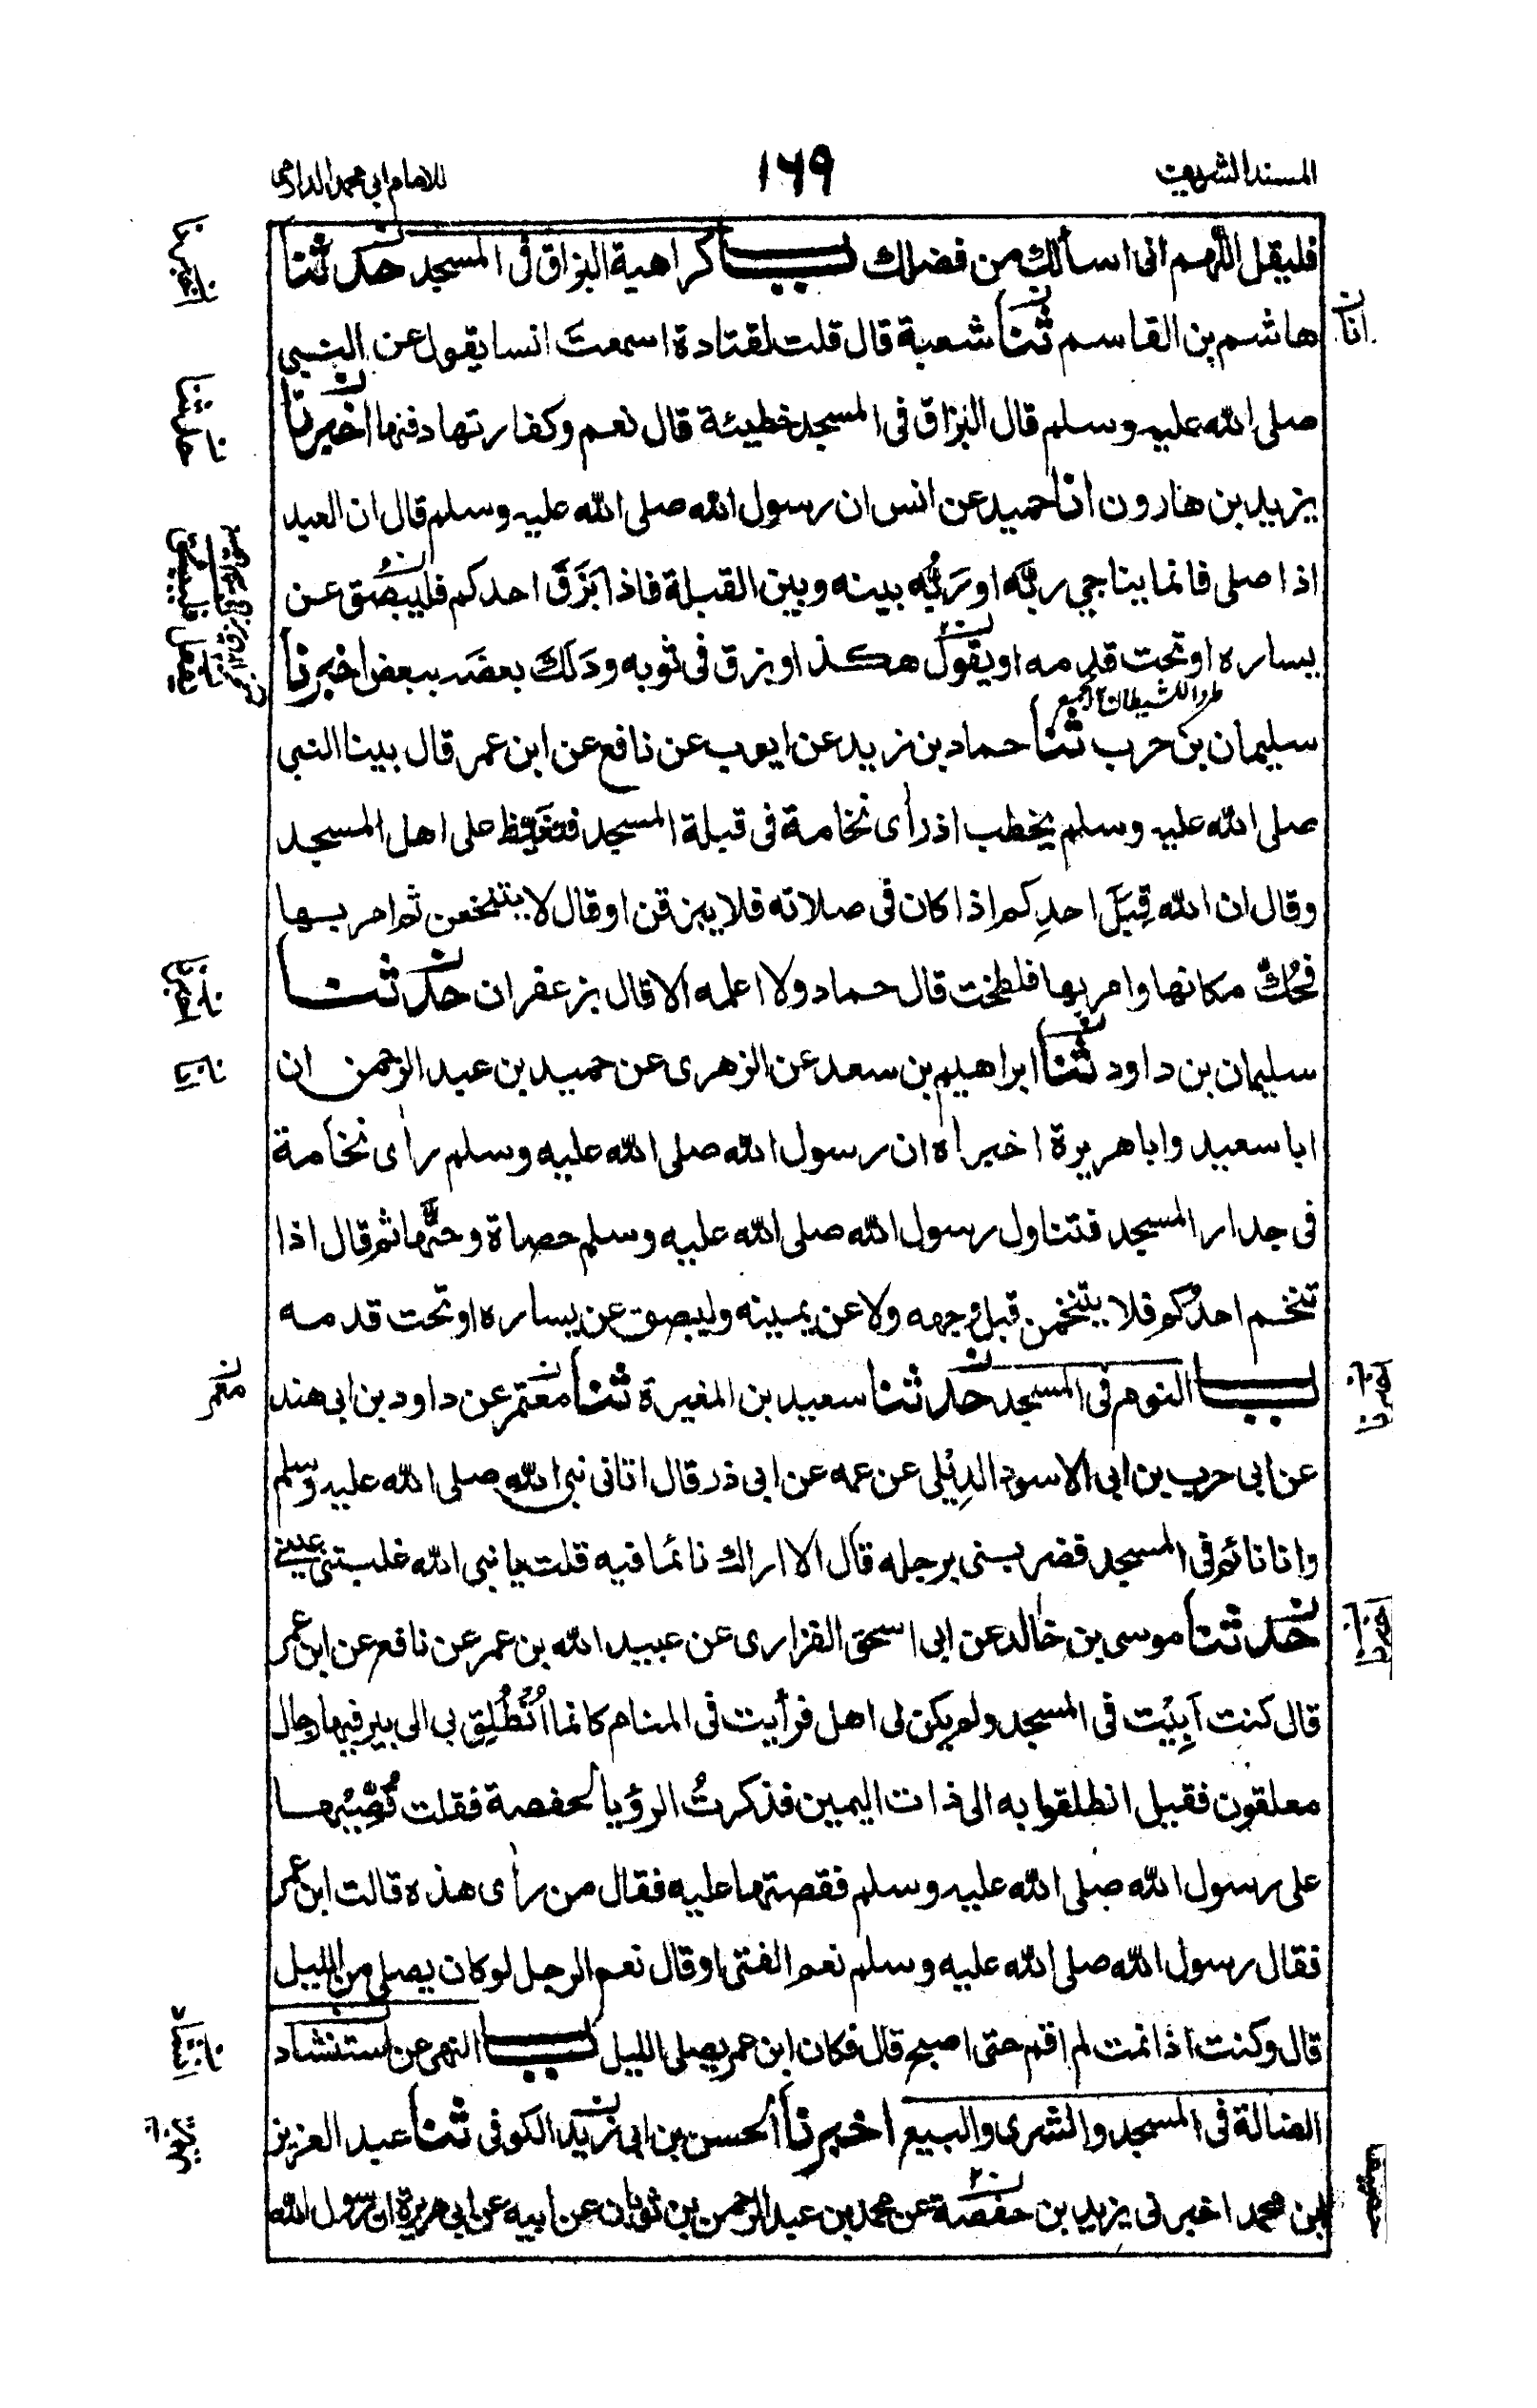 المسند الشريف ١٦٩ للامام ابي محمد الدارمي
فليقل اللهم انى اسألك من فضلك باب كراهية البزاق فى المسجد حدثنا
هاشم بن القاسم ثنا شعبة قال قلت لقتادة اسمعت انسا يقول عن النبي
صلى الله عليه وسلم قال البزاق فى المسجد خطيئة قال نعم وكفارتها دفنها اخبرنا
يزيد بن هارون انا حميد عن انس ان رسول الله صلى الله عليه وسلم قال ان العبد
اذا صلى فانما يناجي ربَّه او رَبُّه بينه وبين القبلة فاذا بَزَقَ احدكم فليبصُق عن
يساره او تحت قدمه او يقول هكذا وبزق فى ثوبه ودَلَكَ بعضَه ببعض اخبرنا
سليمان بن حرب ثنا حماد بن زيد عن ايوب عن نافع عن ابن عمر قال بينا النبي
صلى الله عليه وسلم يخطب اذ رأى نخامة فى قبلة المسجد فتغيَّظ على اهل المسجد
وقال ان الله قِبَلَ احدِكم اذا كان فى صلاته فلا يبزقن او قال لا يتنخعن ثم امر بها
فحُكَّ مكانها وامر بها فلطخت قال حماد ولا اعلمه الا قال بزعفران حدثنا
سليمان بن داود ثنا ابراهيم بن سعد عن الزهرى عن حميد بن عبد الرحمن ان
ابا سعيد وابا هريرة اخبراه ان رسول الله صلى الله عليه وسلم رأى نخامة
فى جدار المسجد فتناول رسول الله صلى الله عليه وسلم حصاة وحتَّها ثم قال اذا
تنخم احدكم فلا يتنخمن قبل وجهه ولا عن يمينه وليبصق عن يساره او تحت قدمه
باب النوم فى المسجد حدثنا سعيد بن المغيرة ثنا معتمر عن داود بن ابى هند
عن ابى حرب بن ابى الاسود الدِيْلى عن عمه عن ابى ذر قال اتانى نبى الله صلى الله عليه وسلم
وانا نائم فى المسجد فضربنى برجله قال الا اراك نائما فيه قلت يا نبى الله غلبتنى عينى
حدثنا موسى بن خالد عن ابى اسحق الفزارى عن عبيد الله بن عمر عن نافع عن ابن عمر
قال كنت اَبِيْت فى المسجد ولم يكن لى اهل فرأيت فى المنام كانما اُنْطُلِق بى الى بير فيها رجال
معلقون فقيل انطلقوا به الى ذات اليمين فذكرتُ الرؤيا لحفصة فقلت قُصِّيْها
على رسول الله صلى الله عليه وسلم فقصتها عليه فقال من رأى هذه قالت ابن عمر
فقال رسول الله صلى الله عليه وسلم نعم الفتى او قال نعم الرجل لو كان يصلى من الليل
قال وكنت اذا نمت لم اقم حتى اصبح قال فكان ابن عمر يصلى الليل باب النهى عن استنشاد
الضالة فى المسجد والشرى والبيع اخبرنا الحسن بن ابى زيد الكوفى ثنا عبد العزيز
بن محمد اخبرنى يزيد بن حفصة عن محمد بن عبد الرحمن بن ثوبان عن ابيه عن ابى هريرة ان رسول الله